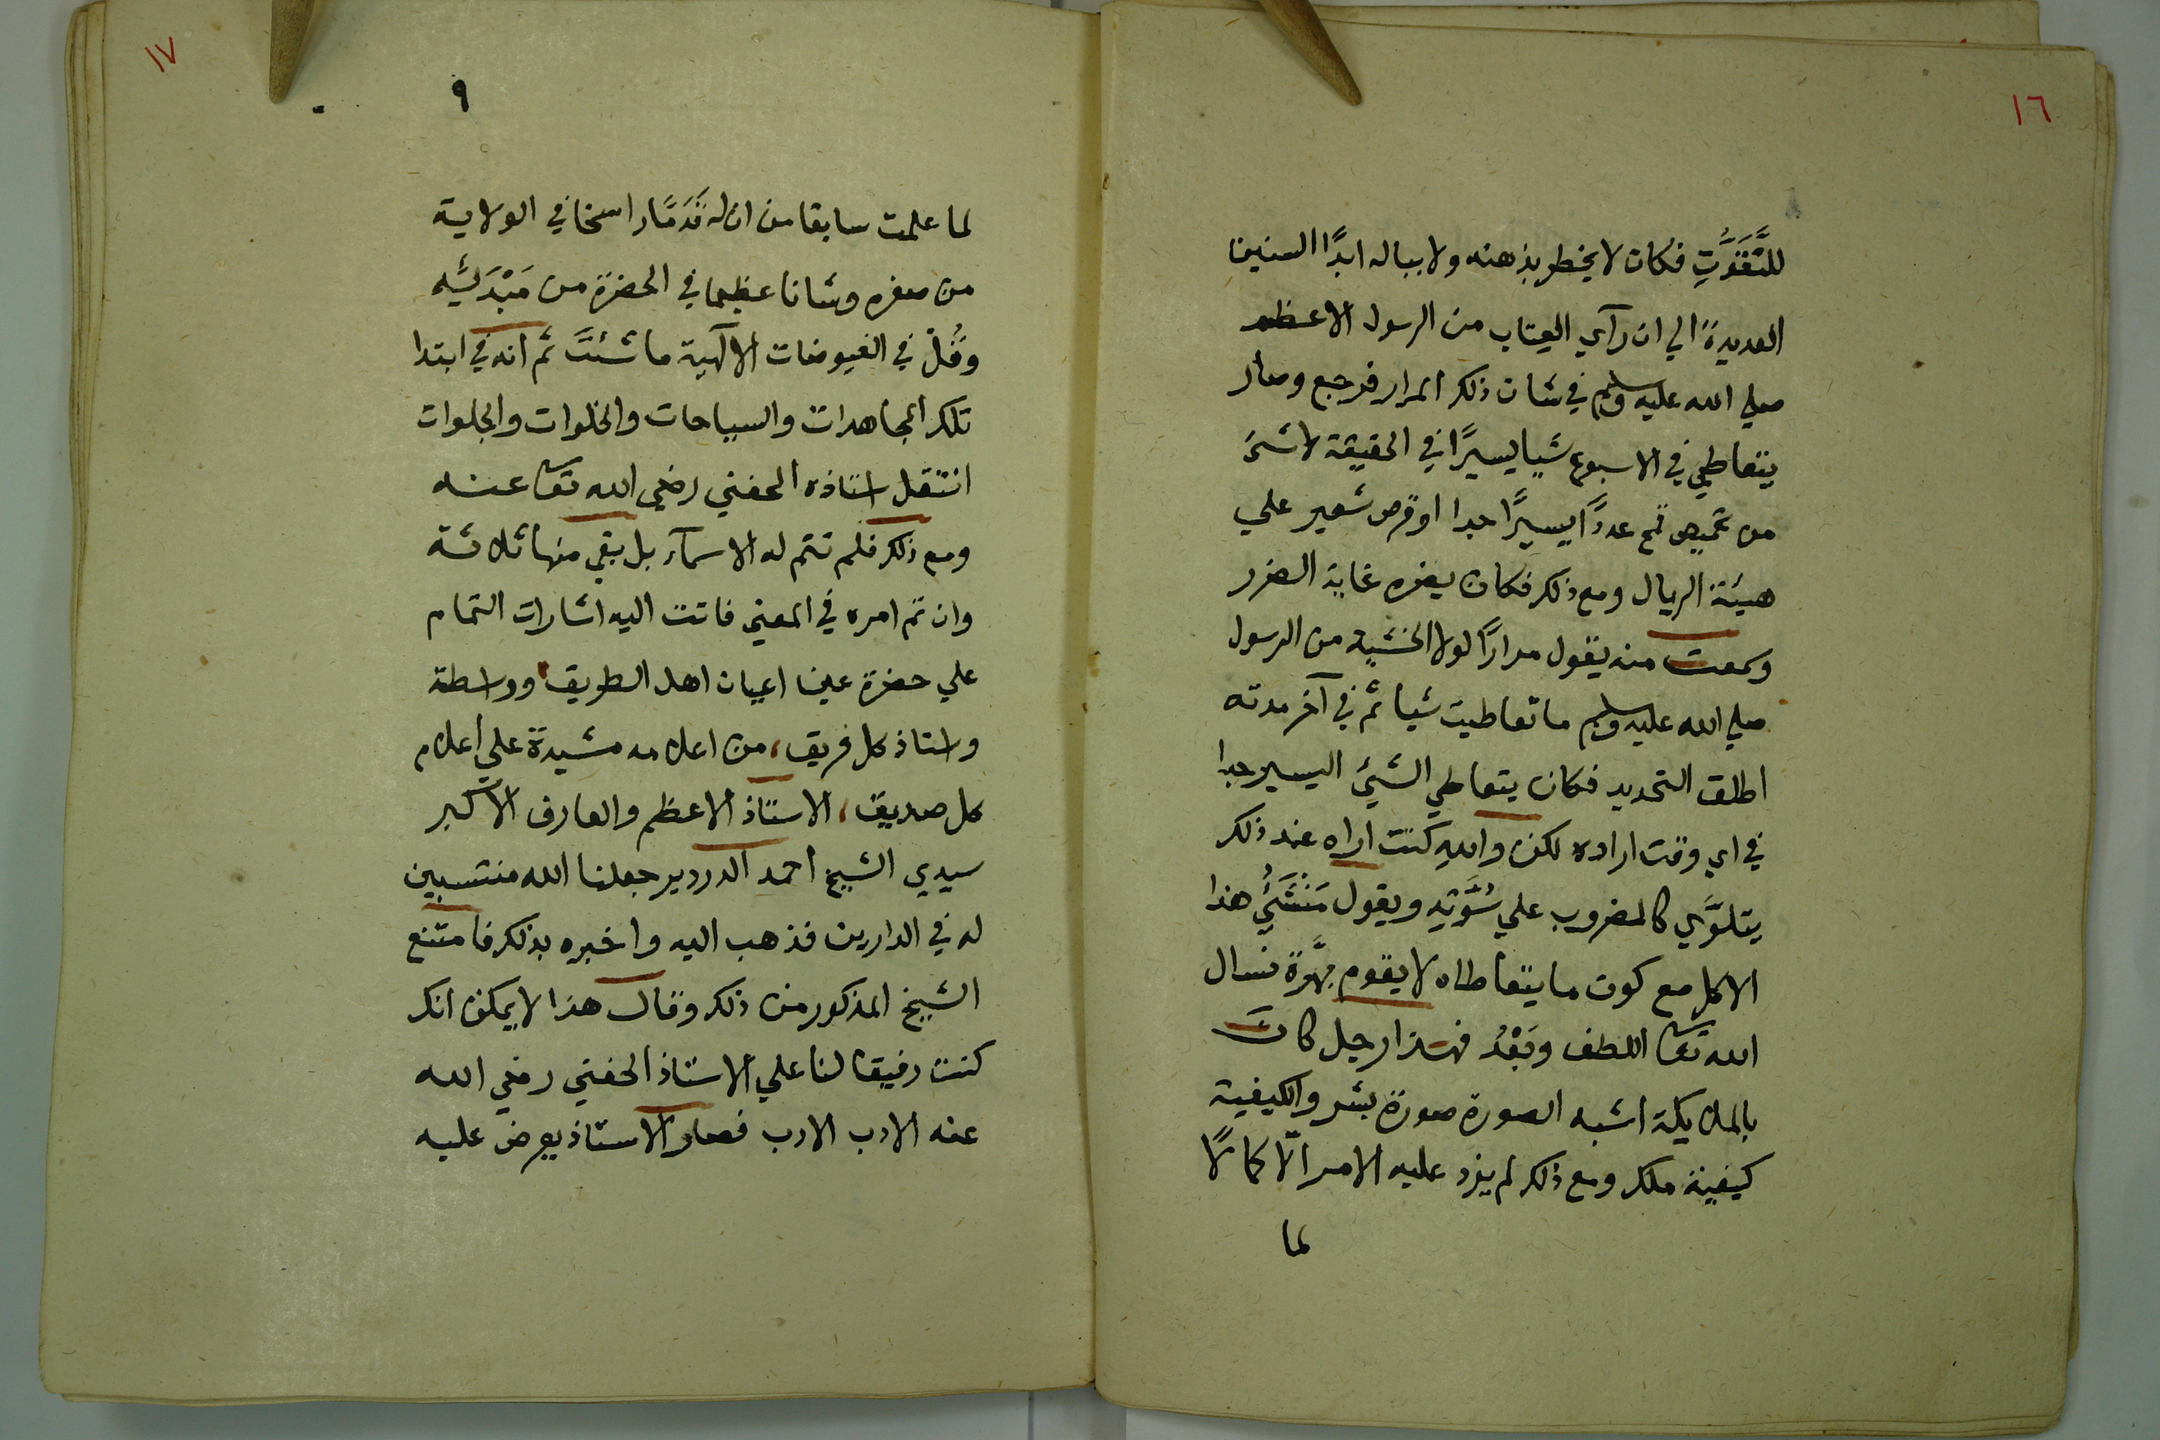 ١٦
للتَّقَوُّتِ فكان لا يخطر بذهنه ولا بباله ابدًا السنين
العديدة الي ان رآي العتاب من الرسول الاعظم
صلي الله عليه وسلم في شان ذلك المرار فرجع وصار
يتعاطي في الاسبوع شيا يسيرًا في الحقيقة لاشئ
من قمح عددًا يسيرًا جدا او قرص شعير علي
هيئة الريال ومع ذلك فكان يضره غاية الضرر
وسمعت منه يقول مرارًا لولا الخشية من الرسول
صلي الله عليه وسلم ما تعاطيت شيا ثم في آخر مدته
اطلق التحديد فكان يتعاطي الشيئ اليسير جدا
في اي وقت اراده لكن والله كنت اراه عند ذلك
يتلوَّي كالمضروب علي ويقول هذا
الاكل مع كون ما يتعاطاه لا يقوم بهرَّة نسال
الله تعا اللطف وبَعْدُ فهذا رجل كان
بالملايكة اشبه الصورة صورة بشر والكيفية
كيفية ملك ومع ذلك لم يزد عليه الامر الّا كمالًا
لما
١٧
٩
لما علمت سابقا من ان له قَدَمًا راسخا في الولاية
من صغره وشانا عظيما في الحضرة من
وقُلْ في الفيوضات الآلهية ما شئتَ ثم انه في ابتدا
تلك المجاهدات والسياحات والخلوات والجلوات
انتقل استاذه الحفني رضي الله تعا عنه
ومع ذلك فلم تتم له الاسمآء بل بقي منها ثلاثة
وان تم امره في المعني فاتت اليه اشارات التمام
علي حضرة عين اعيان اهل الطريق، وواسطة
واستاذ كل فريق، من اعلامه مشيدة علي اعلام
كل صديق، الاستاذ الاعظم والعارف الاكبر
سيدي الشيخ احمد الدردير جعلنا الله منتسبين
له في الدارين فذهب اليه واخبره بذلك فامتنع
الشيخ المذكور من ذلك وقال هذا لا يمكن انك
كنت رفيقا لنا علي الاستاذ الحفني رضي الله
عنه الادب الادب فصار الاستاذ يعرض عليه